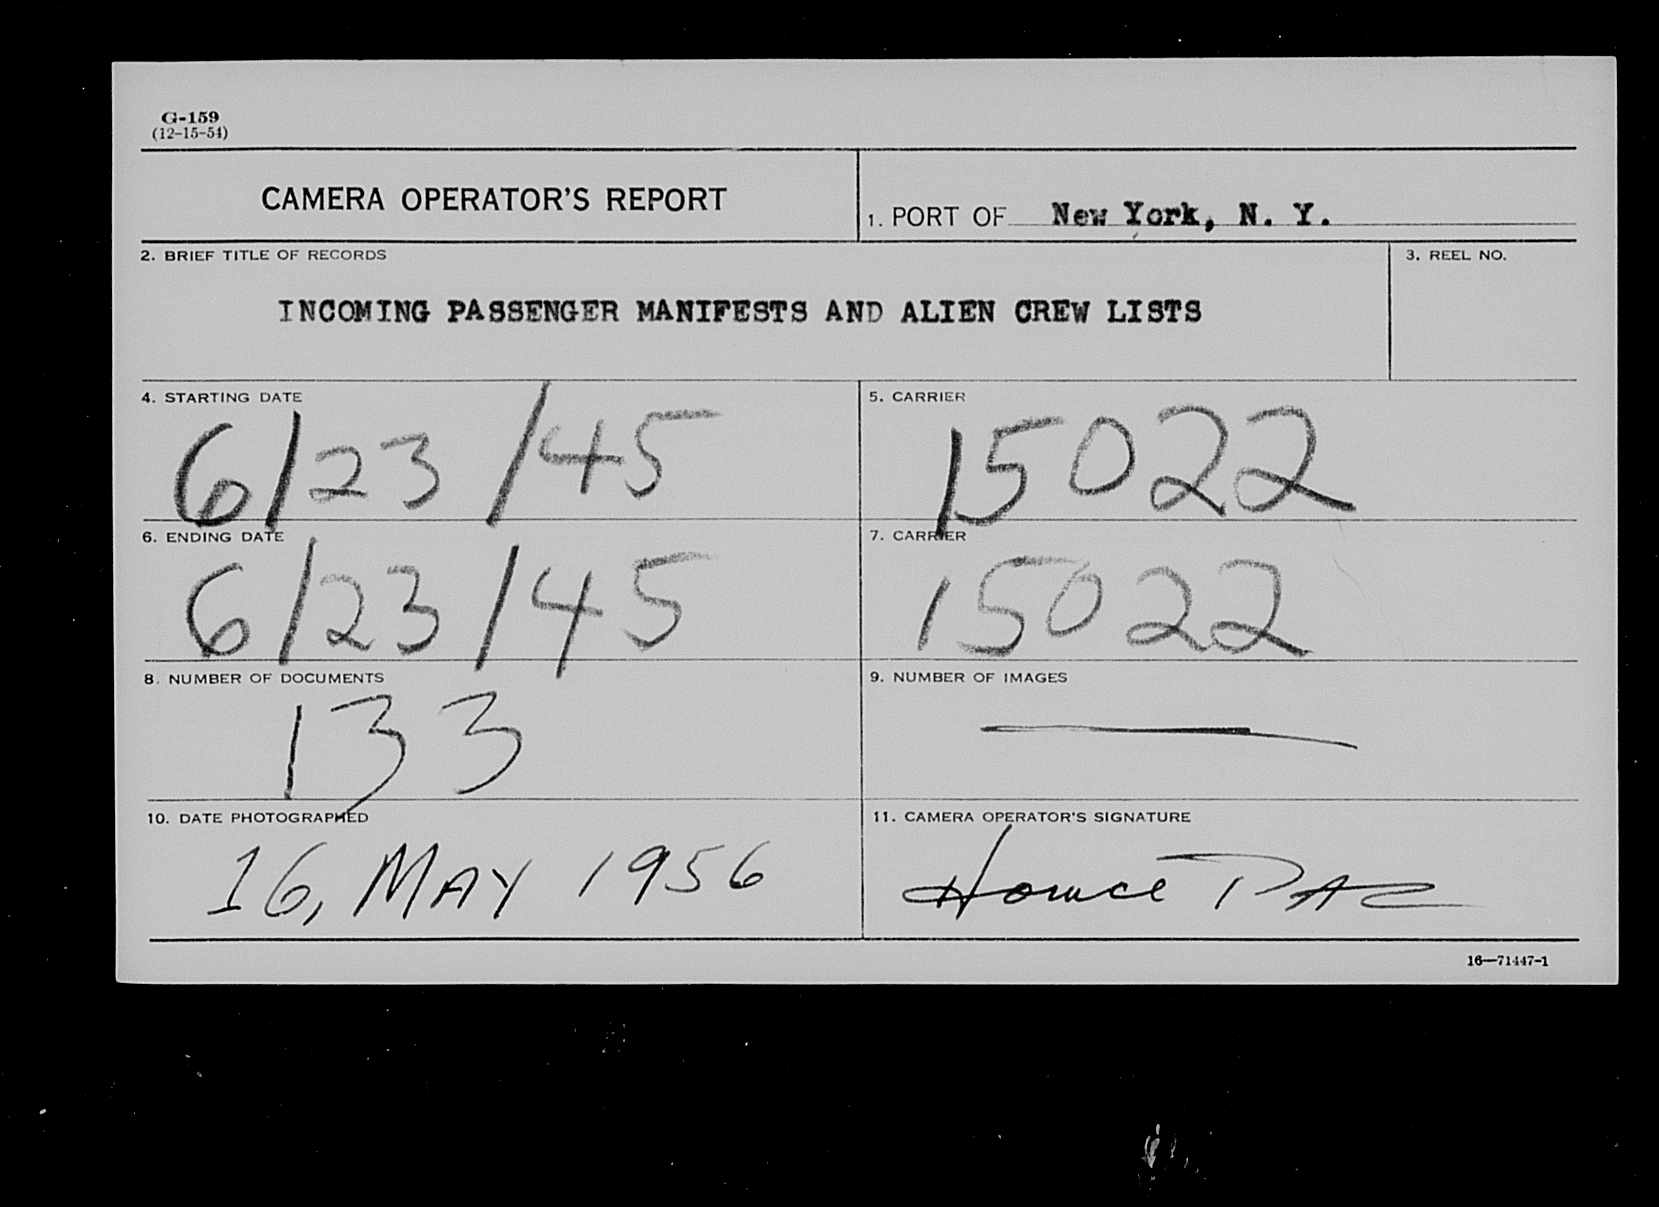 G-159
(12-15-54)
CAMERA OPERATOR'S REPORT
1. PORT OF New York, N. Y.
2. BRIEF TITLE OF RECORDS
3. REEL NO.
INCOMING PASSENGER MANIFESTS AND ALIEN CREW LISTS
4. STARTING DATE
6/23/45
5. CARRIER
15022
6. ENDING DATE
6/23/45
7. CARRIER
15022
8. NUMBER OF DOCUMENTS
133
9. NUMBER OF IMAGES
—
10. DATE PHOTOGRAPHED
16, MAY 1956
11. CAMERA OPERATOR'S SIGNATURE
16—71447-1